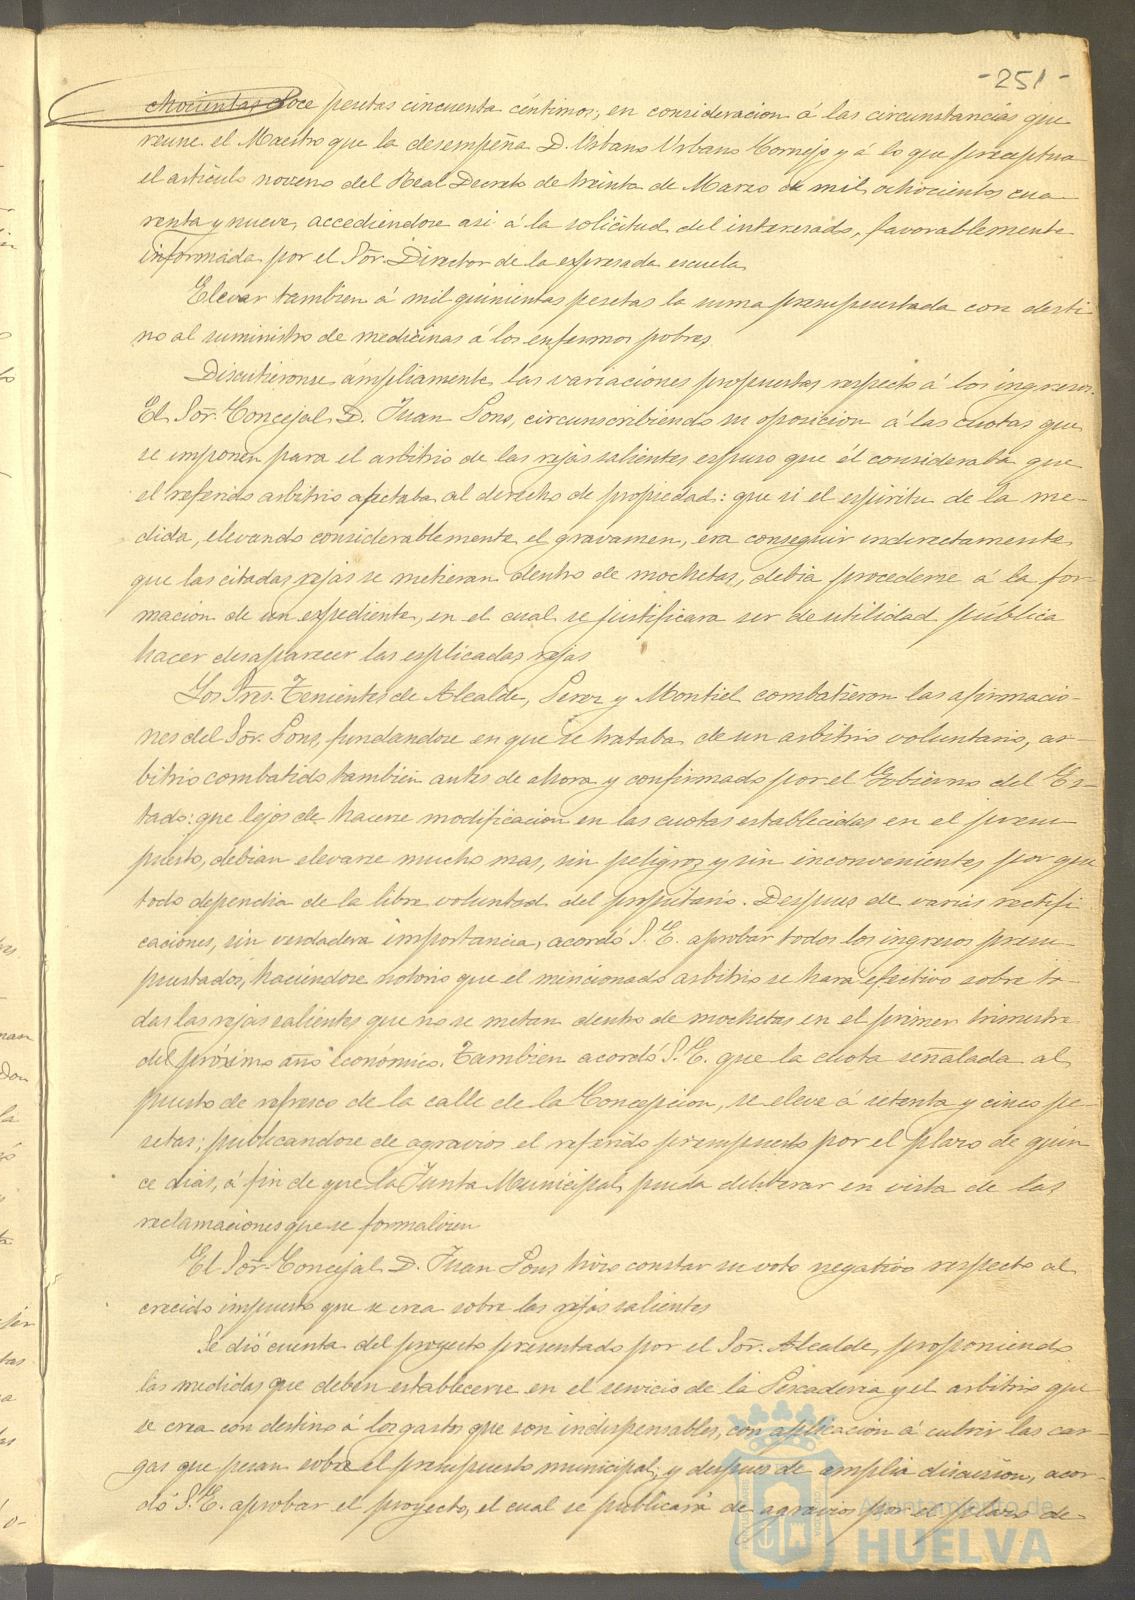 -251-
ochocientas doce pesetas cincuenta céntimos, en consideracion á las circunstancias que
reune el Maestro que la desempeña D. Urbano Urbano Cornejo y á lo que preceptua
el artículo noveno del Real Decreto de treinta de Marzo de mil ochocientos cua
renta y nueve, accediendose asi á la solicitud del interesado, favorablemente
informada por el Sor. Director de la expresada escuela
Elevar tambien á mil quinientas pesetas la suma presupuestada con desti
no al suministro de medicinas á los enfermos pobres.
Discutieronse ámpliamente las variaciones propuestas respecto á los ingresos.
El Sor. Concejal D. Juan Pons, circunscribiendo su oposicion á las cuotas que
se imponen para el arbitrio de las rejas salientes espuso que él consideraba que
el referido arbitrio afectaba al derecho de propiedad: que si el espiritu de la me-
dida, elevando considerablemente el gravamen, era conseguir indirectamente
que las citadas rejas se metieran dentro de mochetas, debia procederse á la for-
macion de un expediente, en el cual se justificara ser de utilidad pública
hacer desaparecer las esplicadas rejas
Los Sres. Tenientes de Alcalde, Perez y Montiel combatieron las afirmacio-
nes del Sor. Pons, fundandose en que se trataba de un arbitrio voluntario, ar-
bitrio combatido tambien antes de ahora y confirmado por el Gobierno del Es-
tado: que lejos de hacerse modificacion en las cuotas establecidas en el presu
puesto, debian elevarse mucho mas, sin peligros y sin inconvenientes por que
todo dependia de la libre voluntad del propietario. Despues de varias rectifi
caciones, sin verdadera importancia, acordó S. E. aprobar todos los ingresos presu
puestados, haciendose notorio que el mencionado arbitrio se hará efectivo sobre to-
das las rejas salientes que no se metan dentro de mochetas en el primer trimestre
del próximo año económico. Tambien acordó S. E. que la cuota señalada al
puesto de refresco de la calle de la Concepcion, se eleve á setenta y cinco pe-
setas; publicandose de agravios el referido presupuesto por el plazo de quin
ce dias, á fin de que la Junta Municipal pueda deliberar en vista de las
reclamaciones que se formalicen
El Sor. Concejal D. Juan Pons hizo constar su voto negativo respecto al
crecido impuesto que se crea sobre las rejas salientes
Se dió cuenta del proyecto presentado por el Sor. Alcalde, proponiendo
las medidas que deben establecerse en el servicio de la Pescaderia y el arbitrio que
se crea con destino á los gastos que son indispensables, con aplicacion á cubrir las car-
gas que pesan sobre el presupuesto municipal; y despues de amplia discusion, acor-
dó S. E. aprobar el proyecto, el cual se publicará de agravios por el plazo de-
Ayuntamiento de
HUELVA